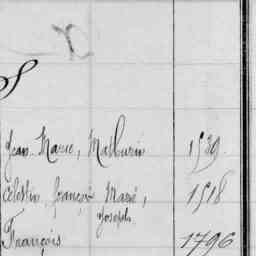 Jean Marie, Mathurin 1539.
Célestin françois Marie, 1518
Joseph
François 1796